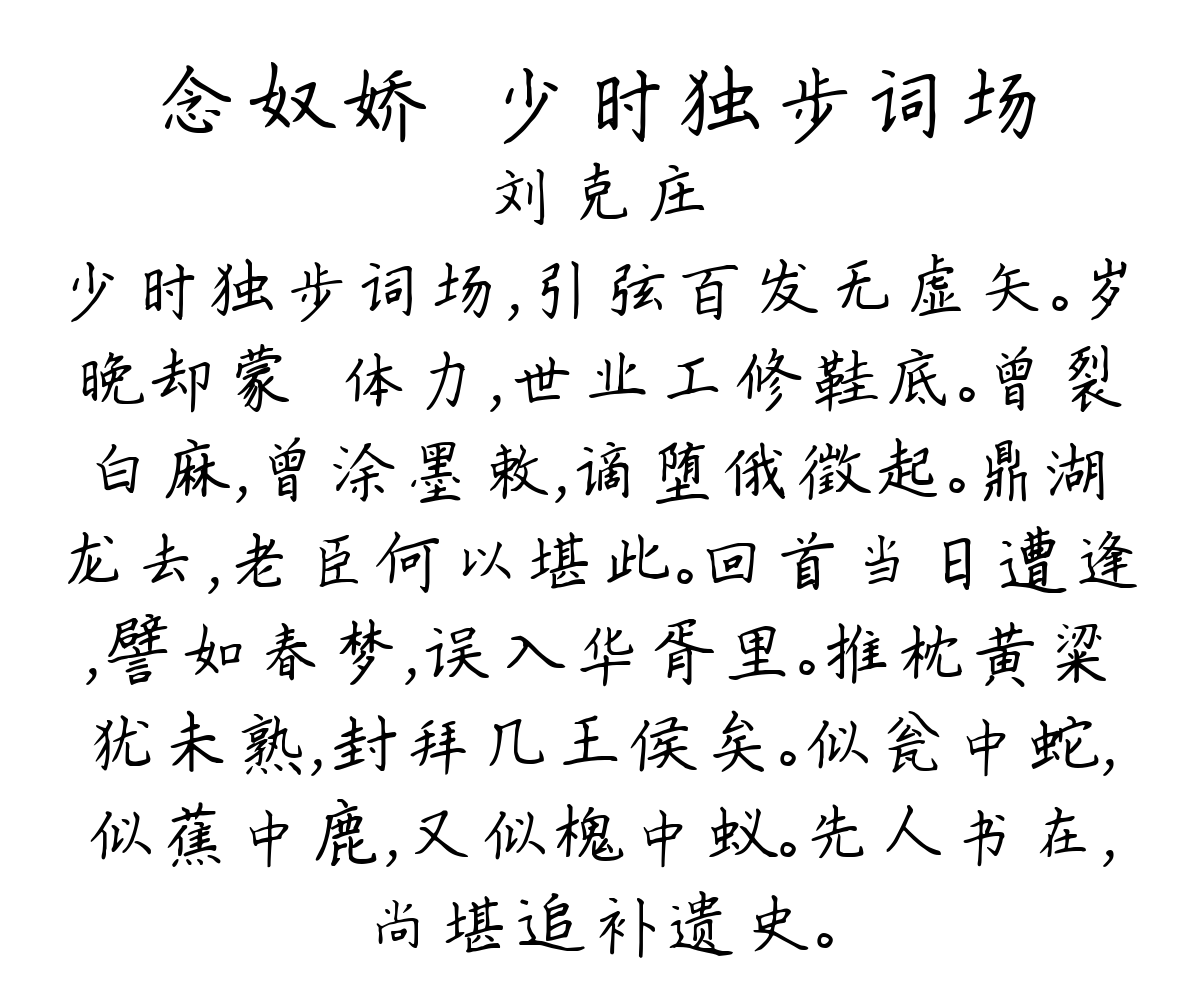 念奴娇 少时独步词场
刘克庄
少时独步词场,引弦百发无虚矢。岁
晚却蒙 体力,世业工修鞋底。曾裂
白麻,曾涂墨敕,谪堕俄徵起。鼎湖
龙去,老臣何以堪此。回首当日遭逢
,譬如春梦,误入华胥里。推枕黄粱
犹未熟,封拜几王侯矣。似瓮中蛇,
似蕉中鹿,又似槐中蚁。先人书在,
尚堪追补遗史。